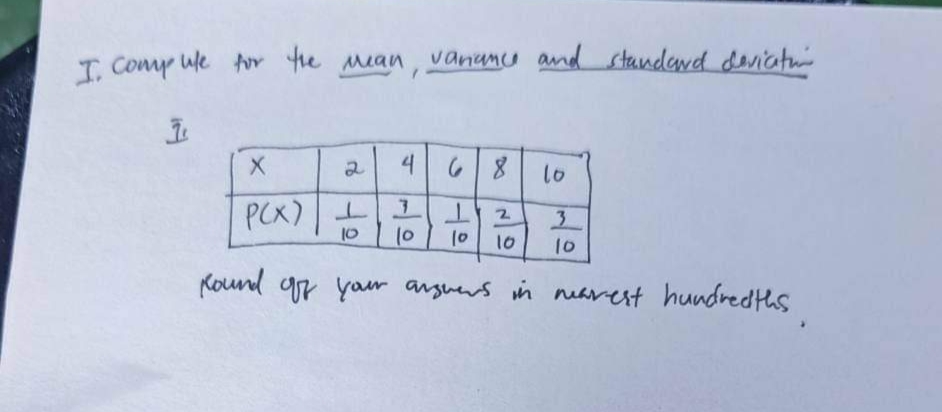 I. Compute for the mean, variance and standard deviation
1.
X 2 4 6 8 10
P(X) 1/10 3/10 1/10 2/10 3/10
Round off your answers in nearest hundredths.